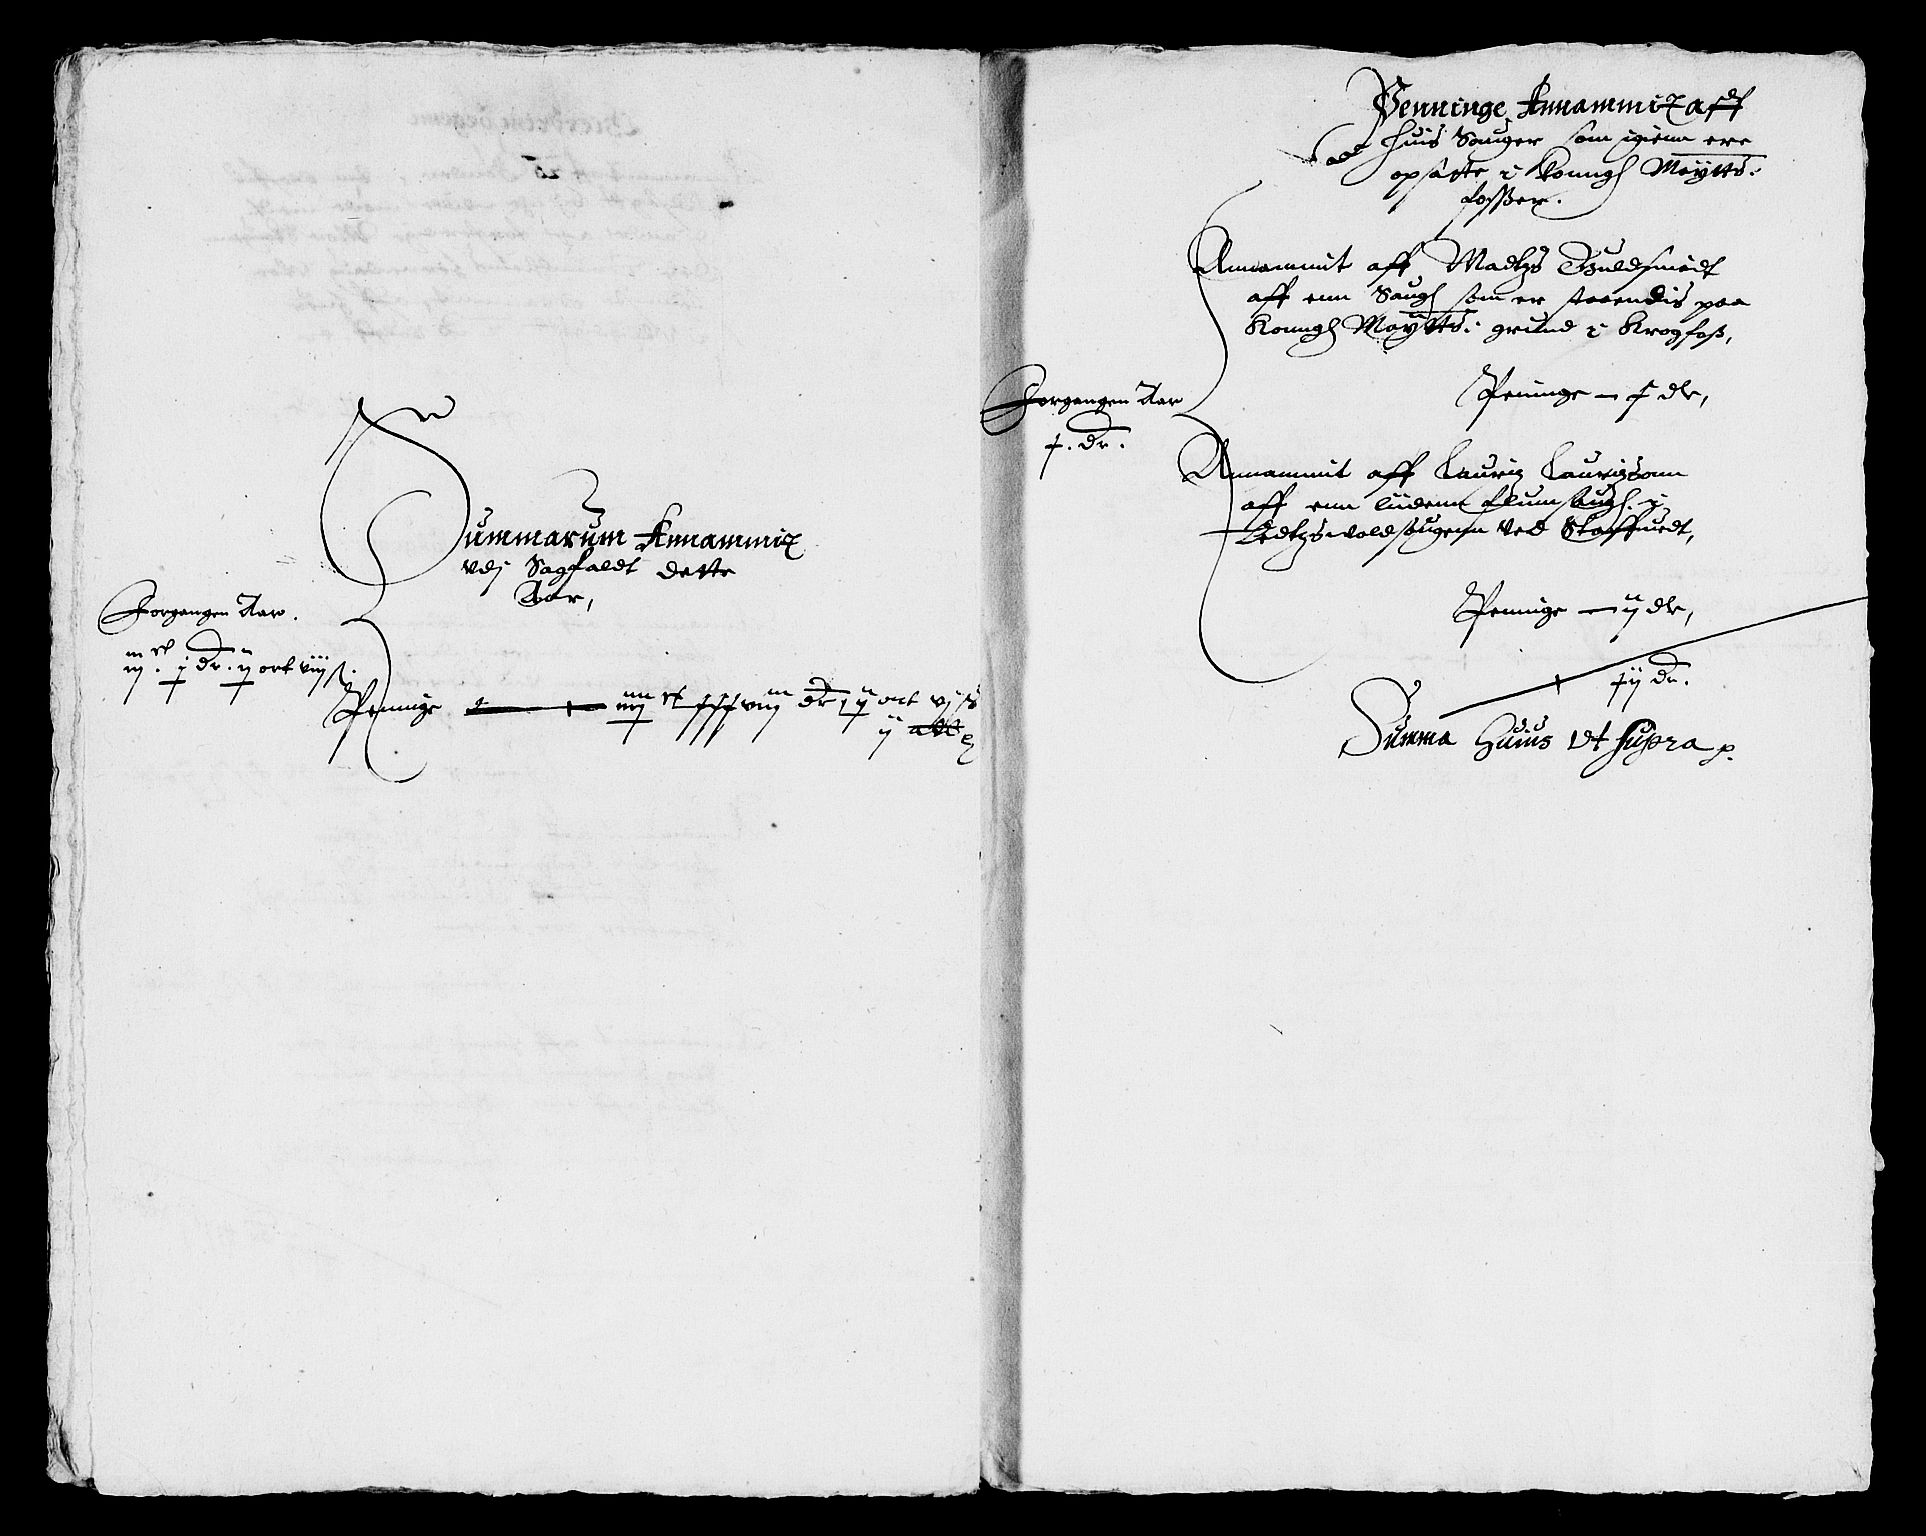 Summarum Annammit
vdj Sagfaldt dette
Aar,
Forgangen Aar.
iiij c j dr. ij ort viij ß.
Peninge — iiij c xxxviij dr ij ort vj ß
ij alb
Penninge Annammit aff
huis Sauger som igienn ere
opsatte i Konngl Maytts.
fosßer.
Annammit aff Madtzs Guldsmedt
aff enn Saugh som er staaendis paa
Konngl Maytts. grund i Krogfoß,
Peninge — x dr,
Forgangen Aar
x. dr.
Annammit aff Lauritz Lauritzsonn
aff enn liidenn flumsaugh i
ved Staffuedt,
Peninge — ij dr,
xij dr.
Summa Huius vt supra